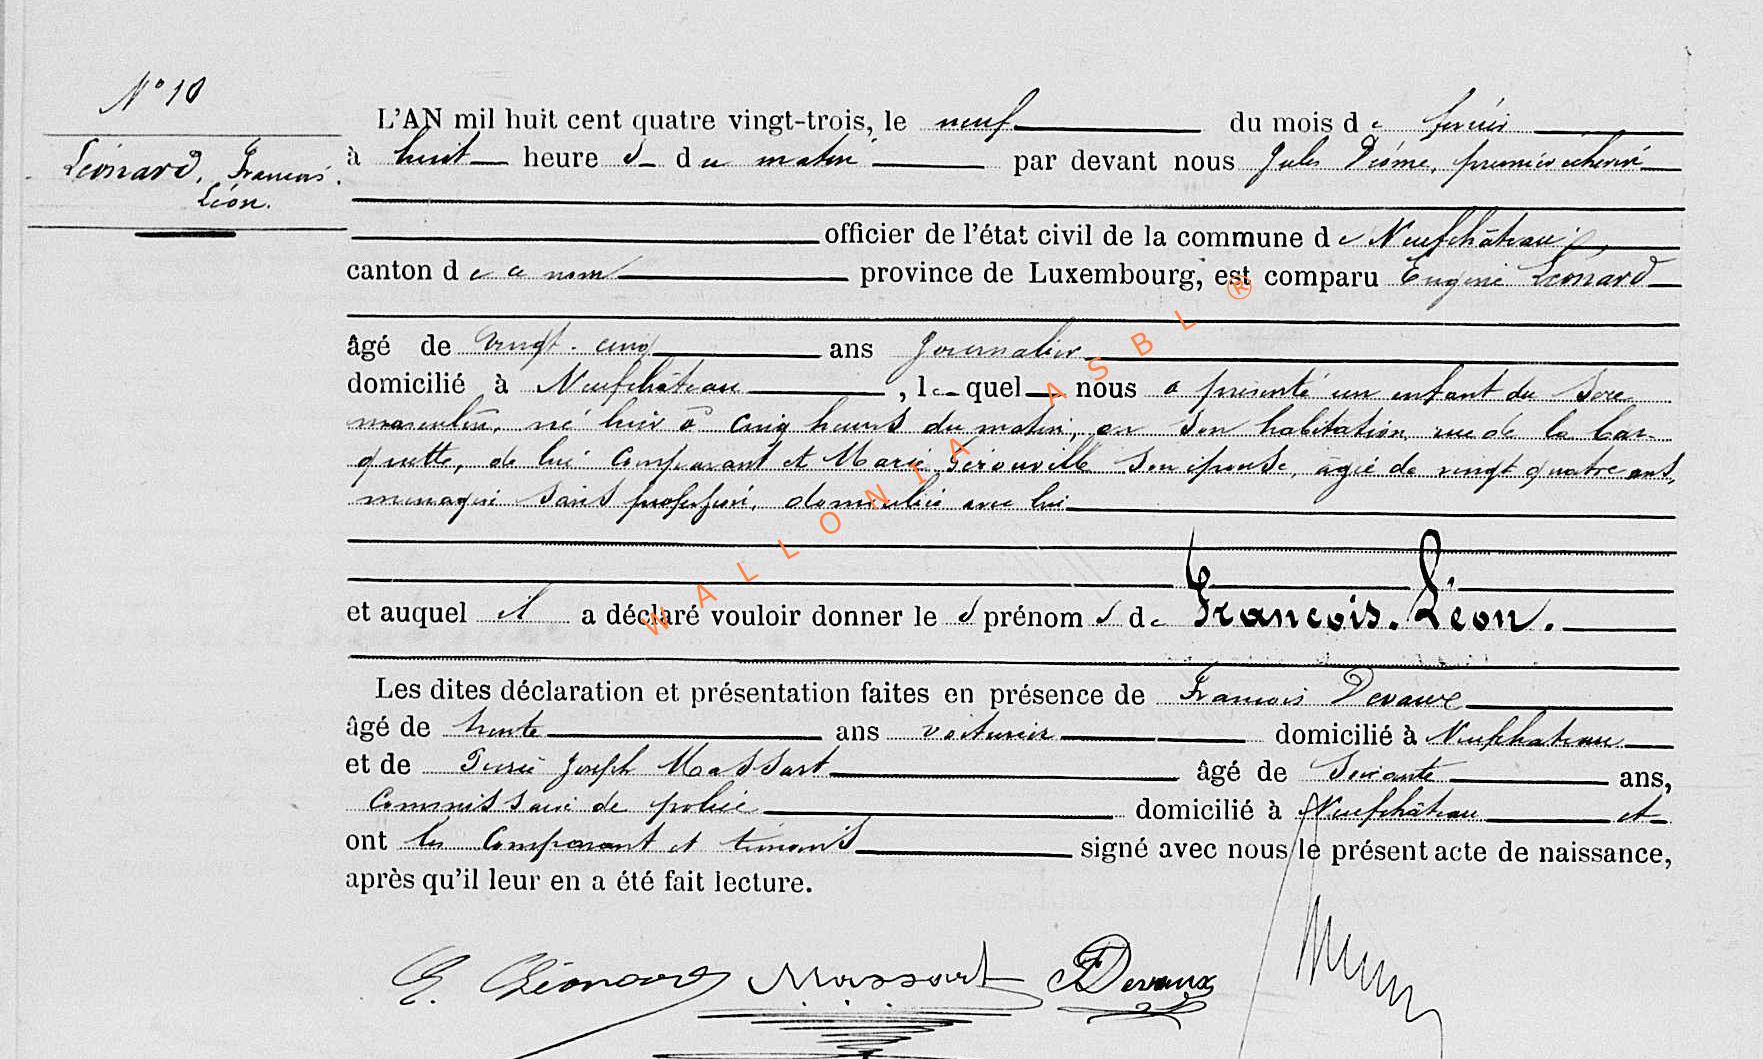 N° 10
Léonard, François
Léon.
L'AN mil huit cent quatre vingt-trois, le neuf du mois de février
à huit heure s du matin par devant nous Jules premier échevin
officier de l'état civil de la commune de Neufchâteau
canton de ce nom province de Luxembourg, est comparu Eugène Léonard
âgé de vingt-cinq ans journalier
domicilié à Neufchâteau, le quel nous a présenté un enfant du sexe
masculin, né hier à cinq heures du matin, en son habitation rue de la
de lui comparant et Marie Gérouville son épouse, âgée de vingt quatre ans,
ménagère sans profession, domiciliée avec lui
et auquel il a déclaré vouloir donner le s prénom s de François. Léon.
Les dites déclaration et présentation faites en présence de François Devaux
âgé de trente ans voiturier domicilié à Neufchateau
et de Pierre Joseph Massart âgé de soixante ans,
Commissaire de police domicilié à Neufchâteau et
ont les comparant et témoins signé avec nous le présent acte de naissance,
après qu'il leur en a été fait lecture.
E. Léonard Massart F Devaux
WALLONIA ASBL ®